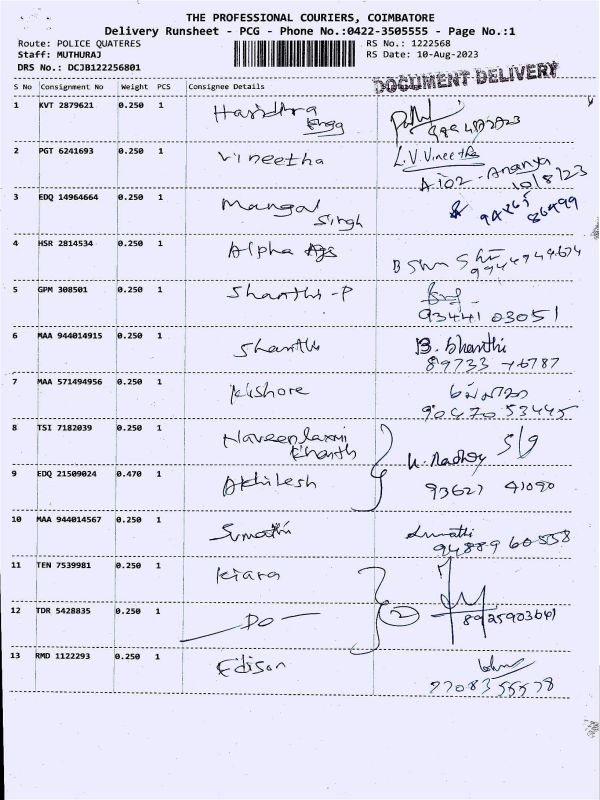 THE PROFESSIONAL COURIERS, COIMBATORE
Delivery Runsheet - PCG - Phone No.:0422-3505555 - Page No.:1
Route: POLICE QUATERES RS No.: 1222568
Staff: MUTHURAJ RS Date: 10-Aug-2023
DRS No.: DCJB122256801
DOCUMENT DELIVERY
S No Consignment No Weight PCS Consignee Details
1 KVT 2879621 0.250 1
2 PGT 6241693 0.250 1 Vineetha L.V.Vineetha
A102 - Ananya
10/8/23
3 EDQ 14964664 0.250 1 Mangal Singh
86499
4 HSR 2814534 0.250 1 Alpha
5 GPM 308501 0.250 1 Shanthi - P
93441 03051
6 MAA 944014915 0.250 1 Shanthi B. Shanthi
89733 76787
7 MAA 571494956 0.250 1 Kishore
90470 53445
8 TSI 7182039 0.250 1 Naveen laxmi
9 EDQ 21509024 0.470 1 Akhilesh
93627 41090
10 MAA 944014567 0.250 1 Sumathi Sumathi
94889 60558
11 TEN 7539981 0.250 1 Kiara
12 TDR 5428835 0.250 1 — DO — 2
8925903641
13 RMD 1122293 0.250 1 Edison
77083 55578